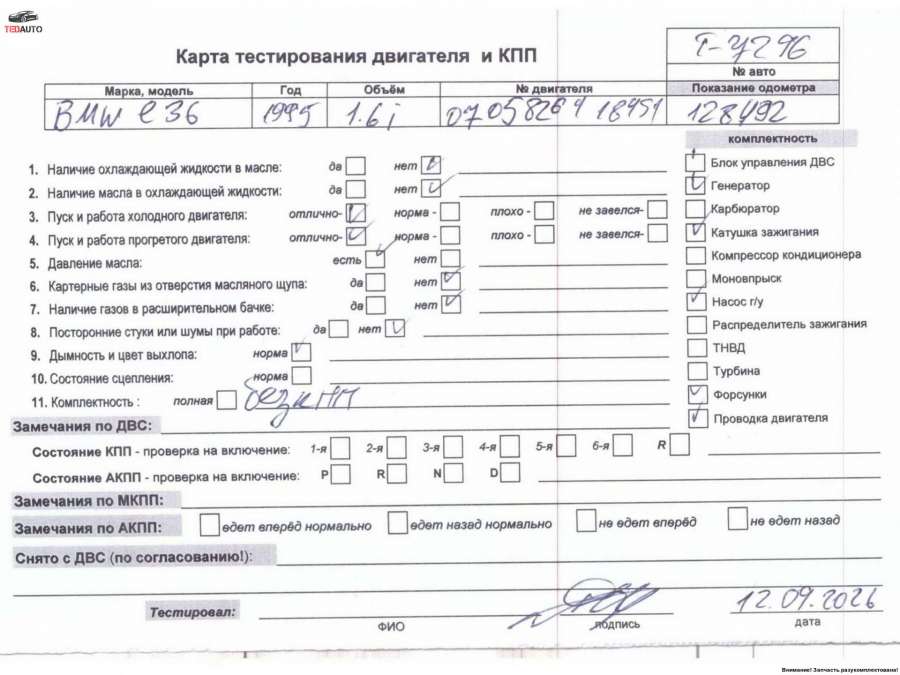 TEDAUTO
Карта тестирования двигателя и КПП
Т-7296
№ авто
Марка, модель Год Объём № двигателя Показание одометра
BMW e36 1995 1.6i 07058264 18451 128492
комплектность
1. Наличие охлаждающей жидкости в масле: да нет
2. Наличие масла в охлаждающей жидкости: да нет
3. Пуск и работа холодного двигателя: отлично- норма - плохо - не завелся-
4. Пуск и работа прогретого двигателя: отлично- норма - плохо - не завелся-
5. Давление масла: есть нет
6. Картерные газы из отверстия масляного щупа: да нет
7. Наличие газов в расширительном бачке: да нет
8. Посторонние стуки или шумы при работе: да нет
9. Дымность и цвет выхлопа: норма
10. Состояние сцепления: норма
11. Комплектность : полная без кпп
Блок управления ДВС
Генератор
Карбюратор
Катушка зажигания
Компрессор кондиционера
Моновпрыск
Насос г/у
Распределитель зажигания
ТНВД
Турбина
Форсунки
Проводка двигателя
Замечания по ДВС:
Состояние КПП - проверка на включение: 1-я 2-я 3-я 4-я 5-я 6-я R
Состояние АКПП - проверка на включение: P R N D
Замечания по МКПП:
Замечания по АКПП: едет вперёд нормально едет назад нормально не едет вперёд не едет назад
Снято с ДВС (по согласованию!):
Тестировал:
12.09.2026
ФИО подпись дата
Внимание! Запчасть разукомплектована!